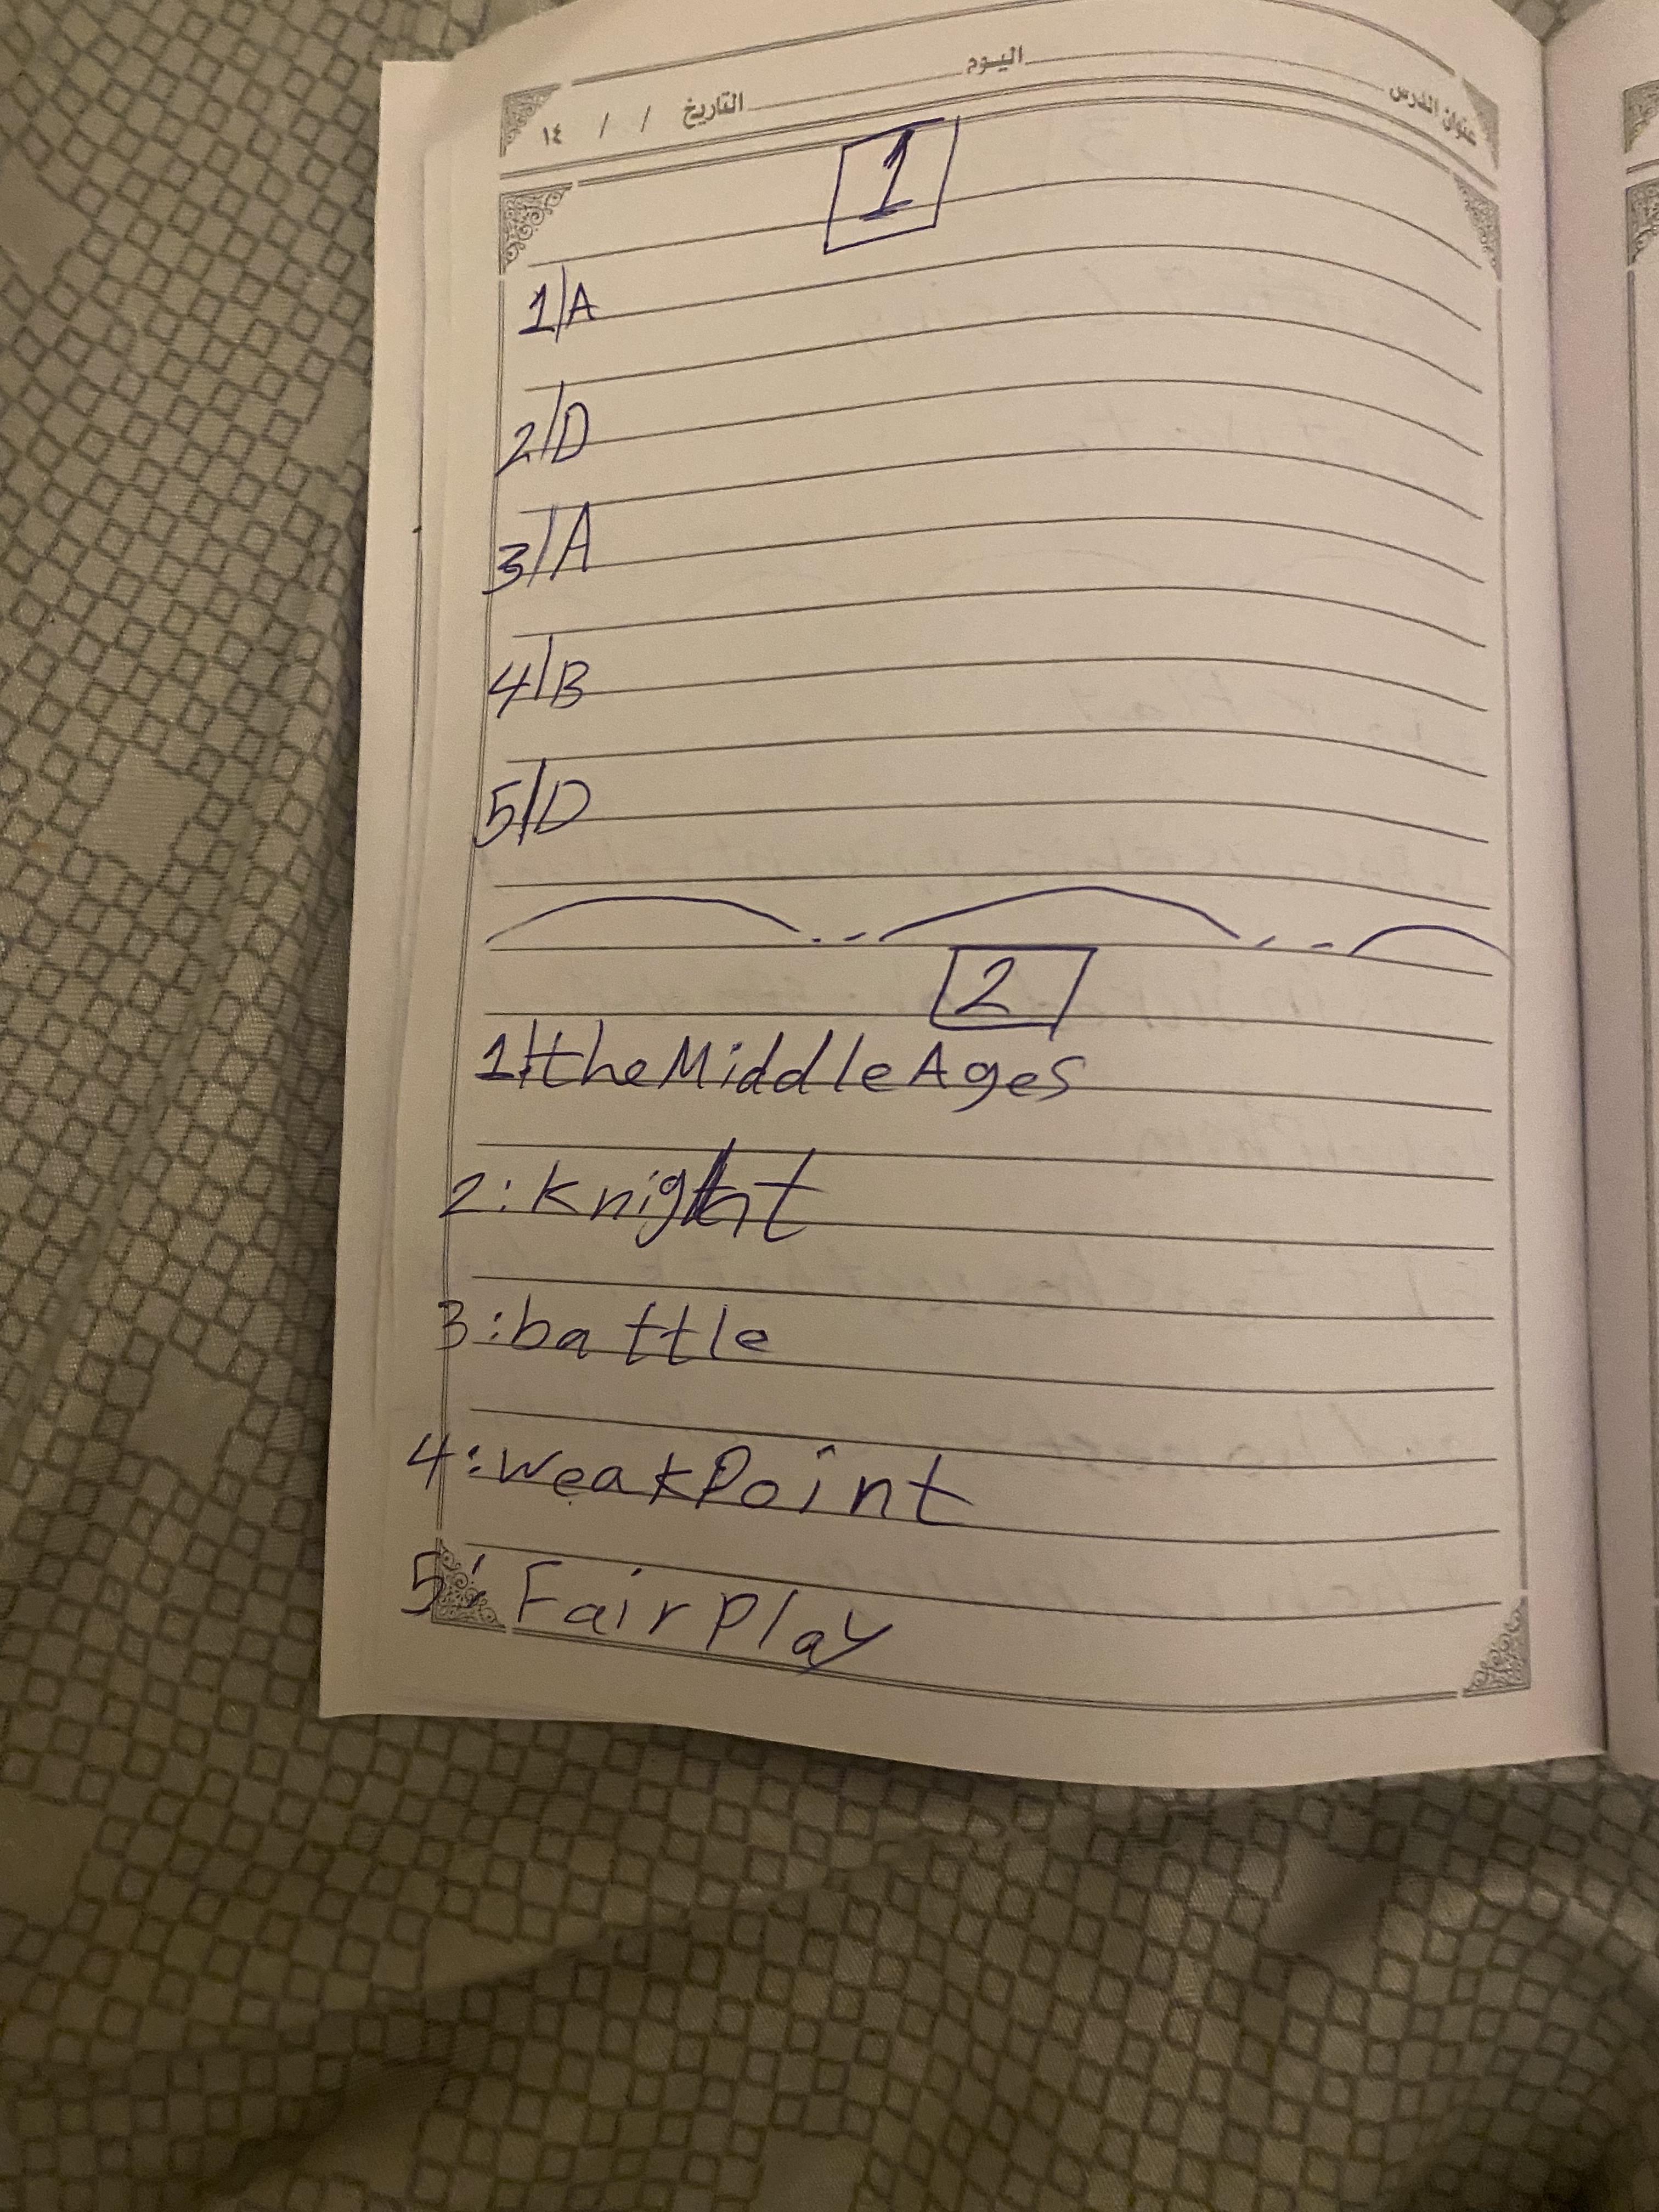 عنوان الدرس اليوم التاريخ / / ١٤
1
1/A
2/D
3/A
4/B
5/D
2
1:the Middle Ages
2:knight
3:battle
4:weak Point
5:Fair Play